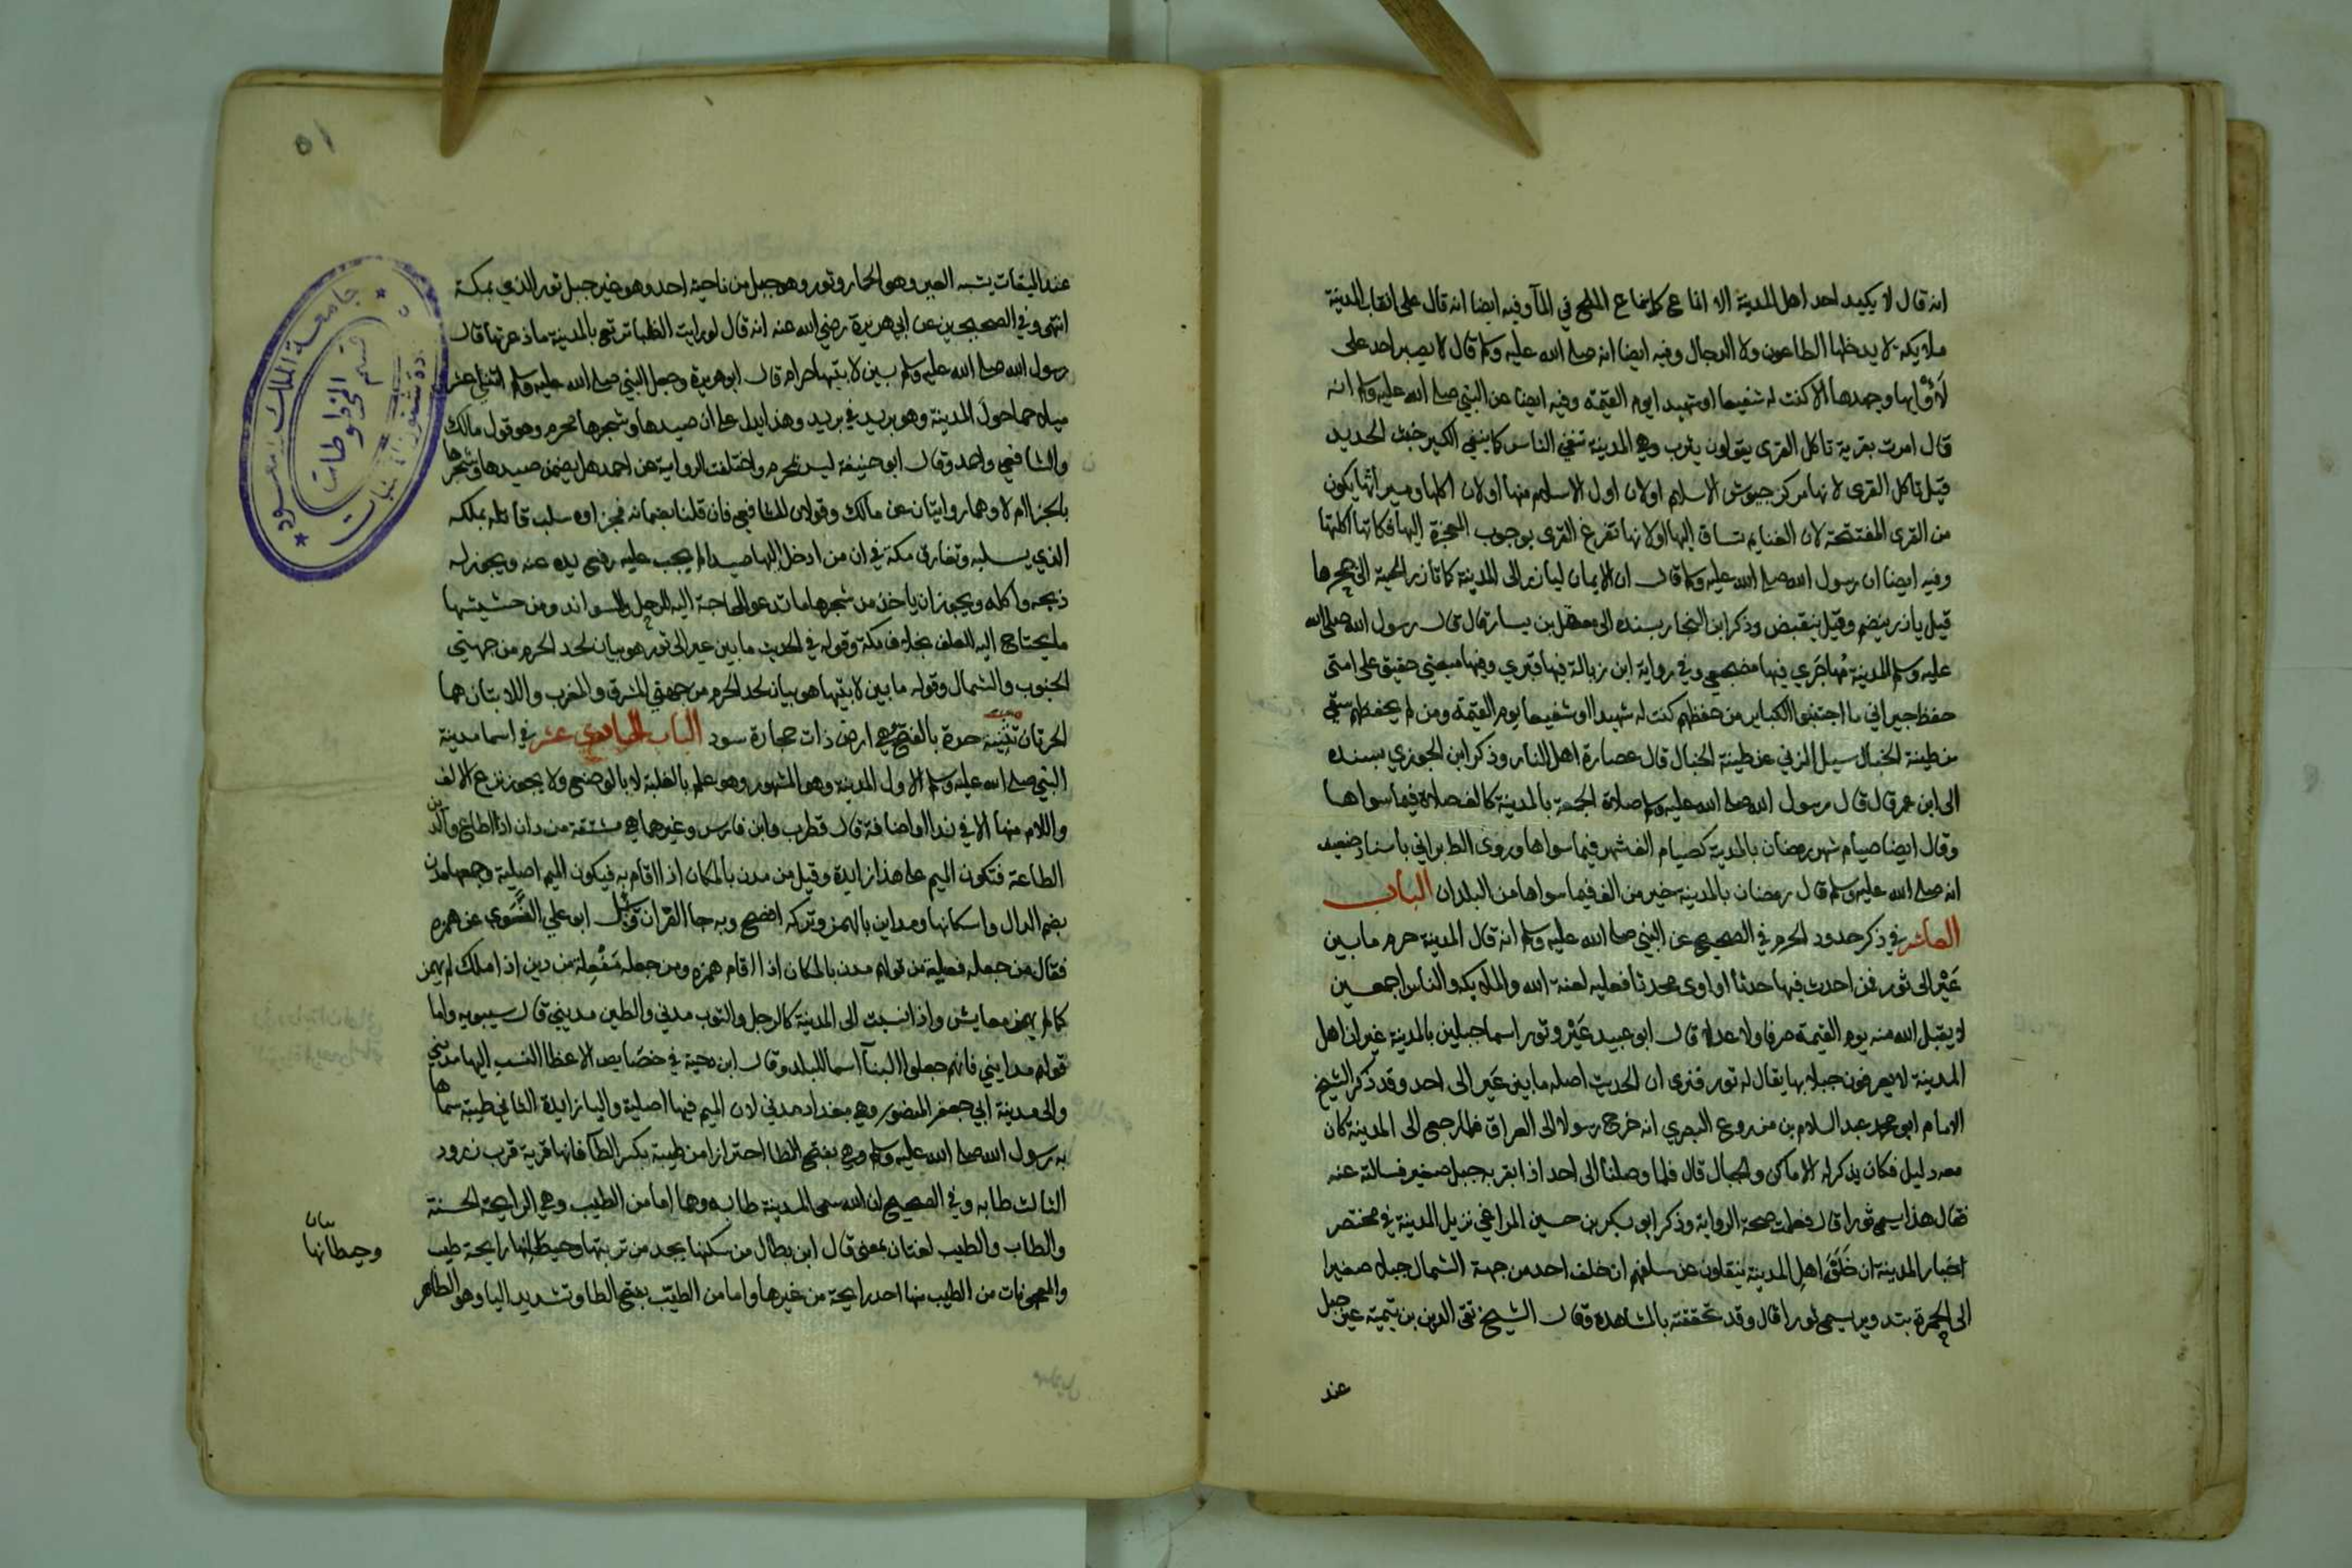 انه قال لا يكيد احد اهل المدينة الا انماع كما ينماع الملح في المآ وفيه ايضا انه قال على انقاب المدينة
ملايكة لا يدخلها الطاعون ولا الدجال وفيه ايضا انه صلى الله عليه وسلم قال لا يصبر احد على
لَأوَائها وجهدها الا كنت له شفيعا او شهيدا يوم القيمة وفيه ايضا عن النبي صلى الله عليه وسلم انه
قال امرت بقرية تاكل القرى يقولون يثرب وهي المدينة تنفي الناس كما ينفي الكير خبث الحديد
قيل تاكل القرى لانها مركز جيوش الاسلام اولان اول الاسلام منها اولان اكلها وميراثها يكون
من القرى المفتتحة لان الغنايم تساق اليها اولانها تفرغ القرى بوجوب الهجرة اليها فكانها اكلتها
وفيه ايضا ان رسول الله صلى الله عليه وسلم قال ان الايمان ليازر الى المدينة كما تازر الحية الى جحرها
قيل يازر ينضم وقيل ينقبض وذكر ابن النجار بسنده الى معقل بن يسار قال قال رسول الله صلى الله
عليه وسلم المدينة مُهاجَري فيها مضجعي وفي رواية ابن زبالة فيها قبري وفيها مبعثي حقيق على امتى
حفظ جيراني ما اجتنبوا الكباير من حفظهم كنت له شهيدا او شفيعا يوم القيمة ومن لم يحفظهم سقي
من طينة الخبال سيل المزني عن طينة الخبال قال عصارة اهل النار وذكر ابن الجوزي بسنده
الى ابن عمر قال قال رسول الله صلى الله عليه وسلم صلاة الجمعة بالمدينة كالف صلاة فيما سواها
وقال ايضا صيام شهر رمضان بالمدينة كصيام الف شهر فيما سواها وروى الطبراني باسناد ضعيف
انه صلى الله عليه وسلم قال رمضان بالمدينة خير من الف فيما سواها من البلدان الباب
العاشر في ذكر حدود الحرم في الصحيح عن النبي صلى الله عليه وسلم انه قال المدينة حرم ما بين
عَيْر الى ثور فمن احدث فيها حدثا او اوى محدثا فعليه لعنة الله والملايكة والناس اجمعين
لا يقبل الله منه يوم القيمة صرفا ولا عدلا قال ابو عبيد عَيْر وثور اسما جبلين بالمدينة غير ان اهل
المدينة لا يعرفون جبلا بها يقال له ثور فنرى ان الحديث اصله ما بين عير الى احد وقد ذكر الشيخ
الامام ابو محمد عبد السلام بن مزروع البصري انه خرج رسولا الى العراق فلما رجع الى المدينة كان
معه دليل فكان يذكر له الاماكن والجبال قال فلما وصلنا الى احد اذا بقربه جبل صغير فسالته عنه
فقال هذا يسمى ثورا قال فعلمت صحة الرواية وذكر ابو بكر بن حسين المراغي نزيل المدينة في مختصر
اخبار المدينة ان خَلَفَ اهل المدينة ينقلون عن سلفهم ان خلف احد من جهة الشمال جبلا صغيرا
الى الحمرة بتدوير يسمى ثورا قال وقد تحققته بالمشاهدة وقال الشيخ تقى الدين بن تيمية عير جبل
عند
٥١
عند الميقات يشبه العير وهو الحمار وثور وهو جبل من ناحية احد وهو غير جبل ثور الذي بمكة
انتهى وفي الصحيحين عن ابي هريرة رضي الله عنه انه قال لو رايت الظبا ترتع بالمدينة ما ذعرتها قال
رسول الله صلى الله عليه وسلم بين لابتيها حرام قال ابو هريرة وجعل النبي صلى الله عليه وسلم اثني عشر
ميلا حما حول المدينة وهو بريد في بريد وهذا يدل على ان صيدها وشجرها محرم وهو قول مالك
والشافعي واحمد وقال ابو حنيفة ليس بمحرم واختلفت الرواية عن احمد هل يضمن صيدها وشجرها
بالجزا ام لا وهما روايتان عن مالك وقولان للشافعي فان قلنا بضمانه فجزاوه سلب قاتله يملكه
الذي يسلبه وتفارق مكة في ان من ادخل اليها صيدا لم يجب عليه رفع يده عنه ويجوز له
ذبحه واكله ويجوز ان ياخذ من شجرها ما تدعو الحاجة اليه للرحل والسواند ومن حشيشها
ما يحتاج اليه للعلف بخلاف مكة وقوله في الحديث ما بين عير الى ثور هو بيان لحد الحرم من جهتي
الجنوب والشمال وقوله ما بين لابتيها هو بيان لحد الحرم من جهتي المشرق والمغرب واللابتان هما
الحرتان تثنية حرة بالفتح وهي ارض ذات حجارة سود الباب الحادي عشر في اسما مدينة
النبي صلى الله عليه وسلم الاول المدينة وهو المشهور وهو علم بالغلبة لا بالوضع ولا يجوز نزع الالف
واللام منها الا في ندا او اضافة قال قطرب وابن فارس وغيرهما هي مشتقة من دان اذا اطاع والدين
الطاعة فتكون الميم على هذا زايدة وقيل من مدن بالمكان اذا اقام به فيكون الميم اصلية وجمعها مدن
بضم الدال واسكانها ومداين بالهمز وتركه افصح وبه جا القران وسُئل ابو علي الفَسَوي عن همزه
فقال من جعله فعيلة من قولهم مدن بالمكان اذا اقام همزه ومن جعله مَفْعِلة من دين اذا ملك لم يهمز
كما لم يهمز معايش واذا نسبت الى المدينة كالرجل والثوب مدني والطين مديني قال سيبويه واما
قولهم مدايني فانهم جعلوا البنآ اسما للبلد وقال ابن دحية في خصايص الاعضا النسب اليها مديني
والى مدينة ابي جعفر المنصور وهي بغداد مدني لان الميم فيها اصلية واليا زايدة الثاني طيبة سماها
به رسول الله صلى الله عليه وسلم وهي بفتح الطا احترازا من طيبة بكسر الطآ فانها قرية قرب زرود
الثالث طابه وفي الصحيح ان الله سمى المدينة طابه وهما اما من الطيب وهي الرايحة الحسنة
والطاب والطيب لغتان بمعنى قال ابن بطال من سكنها يجد من تربتها وحيطانها رايحة طيب
والمعجونات من الطيب منها احد رايحة من غيرها واما من الطيّب بفتح الطا وتشديد اليا وهو الطاهر
بيان
وحيطانها
جامعة الملك سعود
قسم المخطوطات